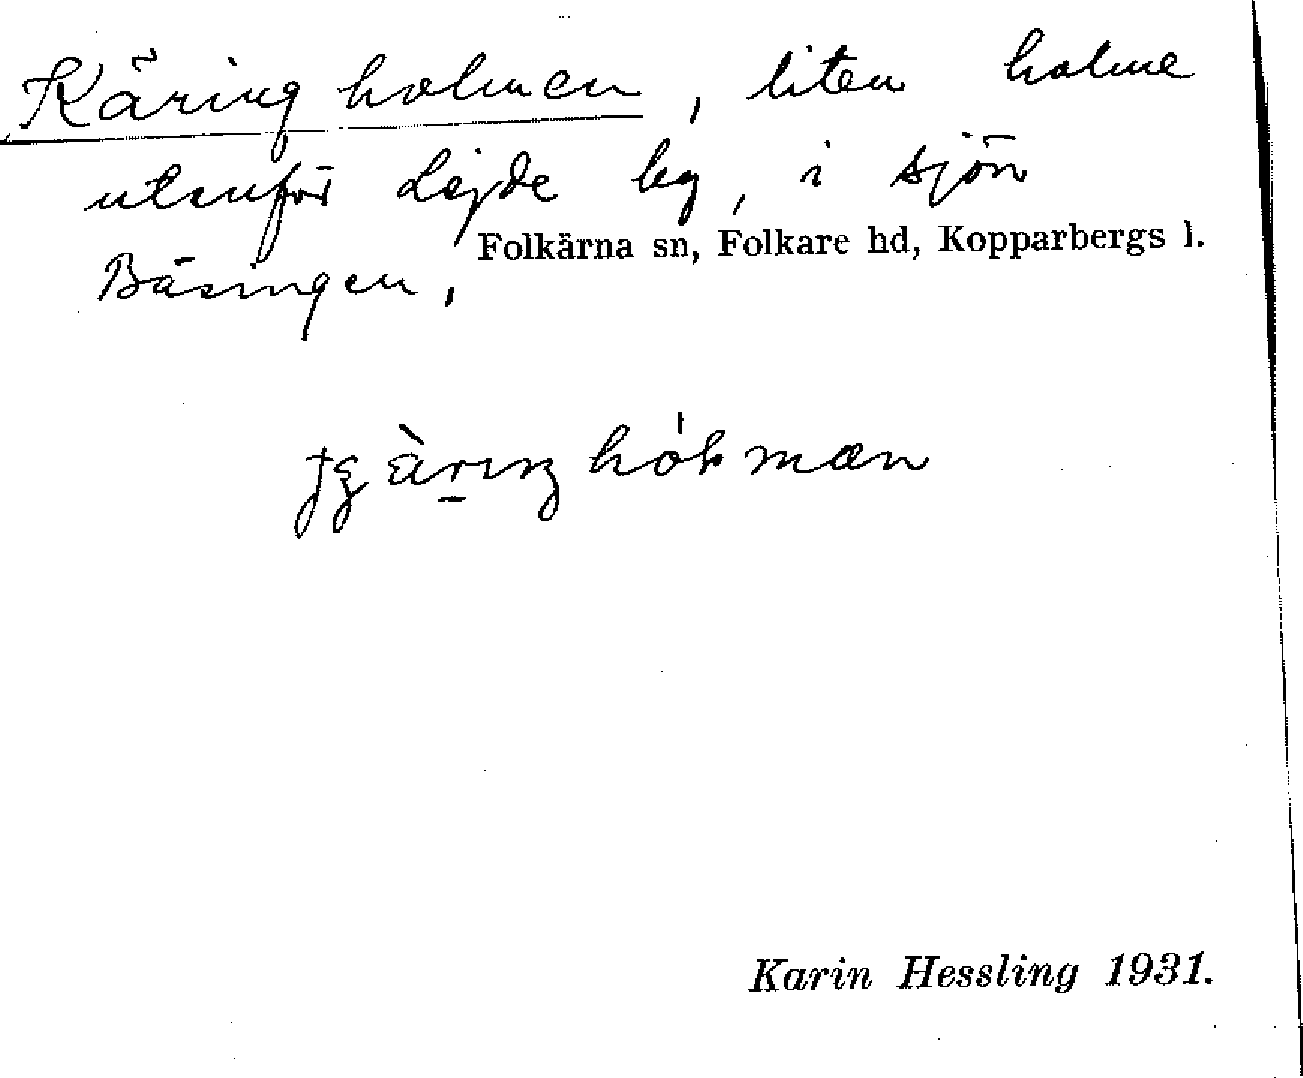 Käringholmen, liten holme
utanför Lejde by, i sjön
Folkärna sn, Folkare hd, Kopparbergs l.
Bäsingen.
Karin Hessling 1931.